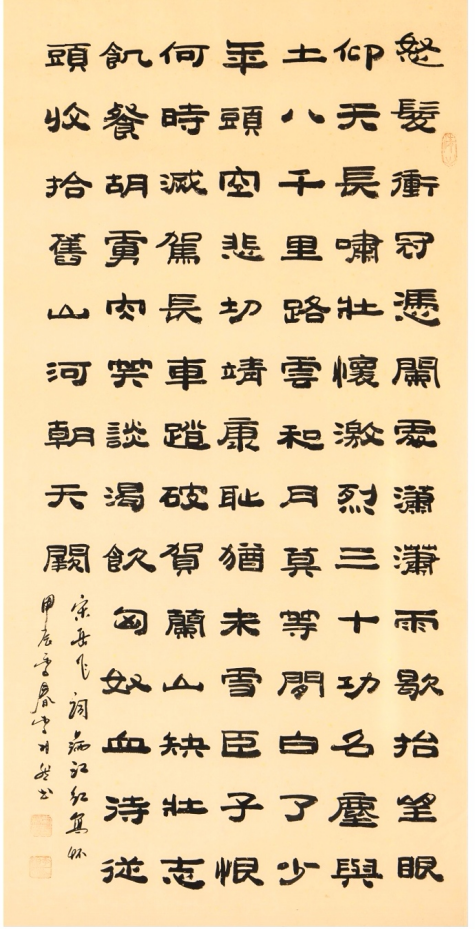 怒髮衝冠憑闌處瀟瀟雨歇抬望眼
仰天長嘯壯懷激烈三十功名塵與
土八千里路雲和月莫等間白了少
年頭空悲切靖康恥猶未雪臣子恨
何時滅駕長車踏破賀蘭山缺壯志
飢餐胡虜肉笑談渴飲匈奴血待從
頭收拾舊山河朝天闕
宋岳飛詞滿江紅寫懷
甲辰春書